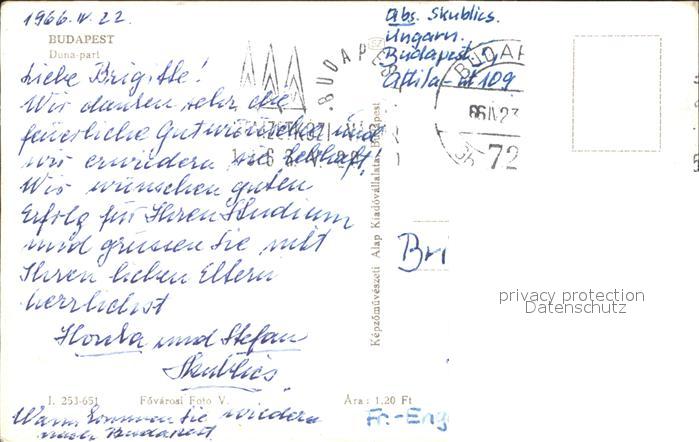 1966. IV. 22.
BUDAPEST
Duna-part
Liebe Brigitte!
Wir danken sehr die
feuerliche Gutwünsche und
wir erwiedern sie lebhaft!
Wir wünschen guten
Erfolg für Ihren Studium
und grüssen Sie mit
Ihren lieben Eltern
herrlichst
und Stefan
Skublics
I. 253-651 Fővárosi Foto V. Ára: 1.20 Ft
Wann kommen Sie wiedern
nach Budapest
Képzőművészeti Alap Kiadóvállalata, Budapest
Abs. Skublics.
Ungarn.
Budapest I,
Attila-út 109
BUDAPEST
BUDAP
72
Bri
privacy protection
Datenschutz
Fr.-Eng